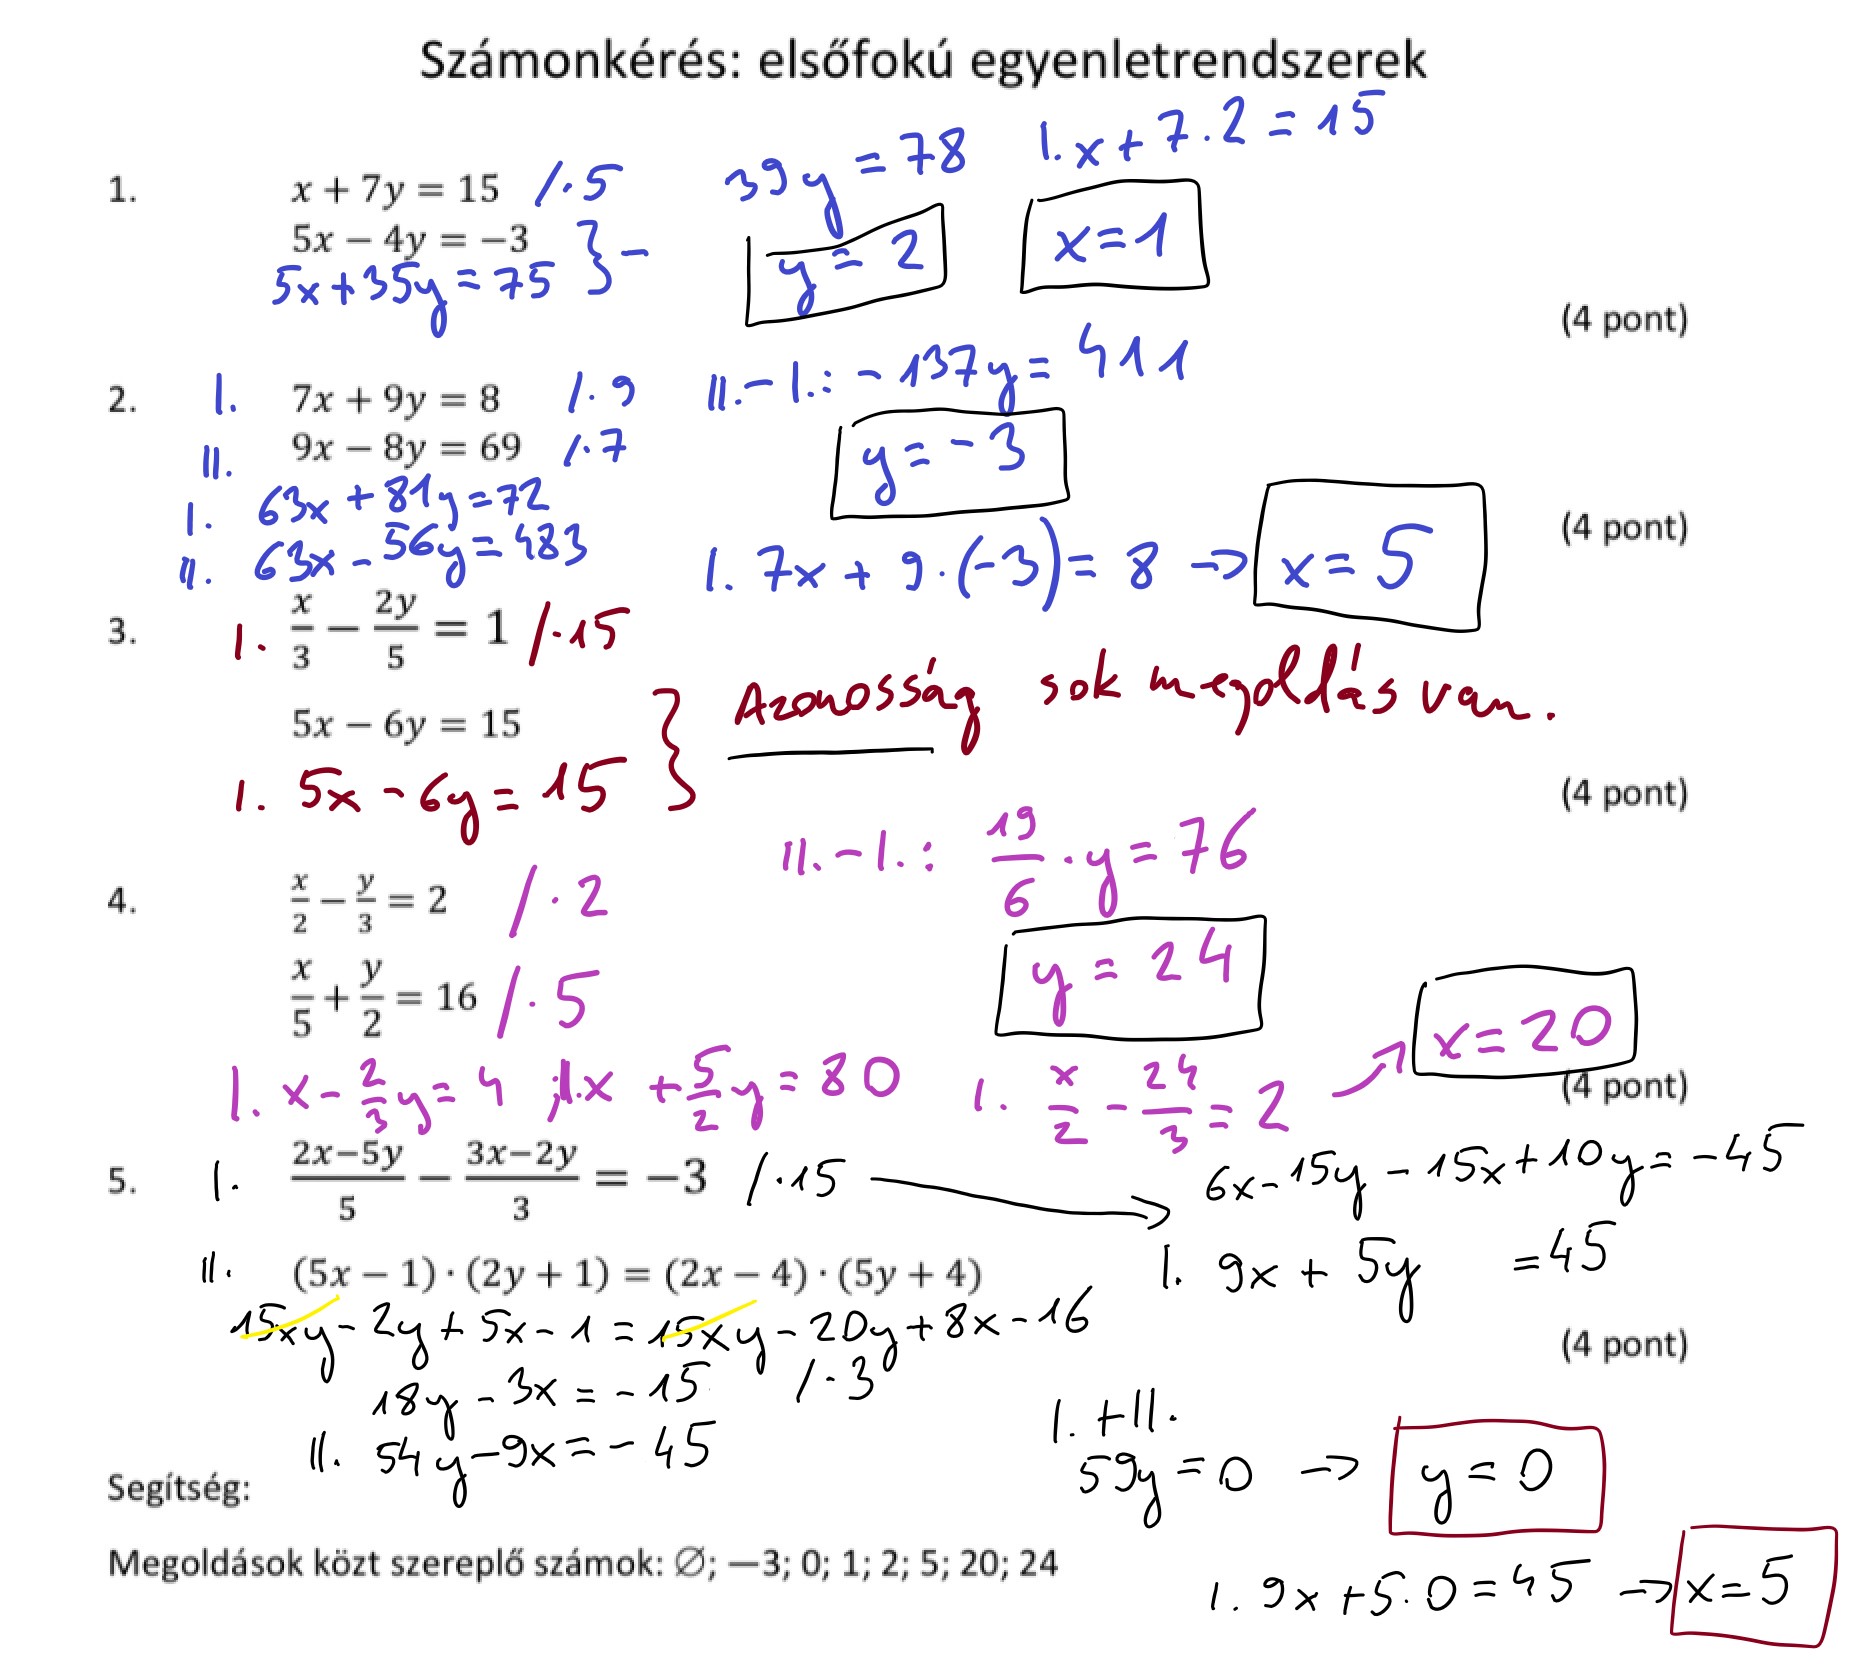 Számonkérés: elsőfokú egyenletrendszerek
1. x + 7y = 15 /·5
5x − 4y = −3
5x+35y=75 } −
39y = 78
y = 2
I. x + 7·2 = 15
x=1
(4 pont)
2. I. 7x + 9y = 8 /·9
II. 9x − 8y = 69 /·7
I. 63x + 81y = 72
II. 63x − 56y = 483
II.−I.: −137y = 411
y = −3
I. 7x + 9·(−3) = 8 → x = 5
(4 pont)
3. I. x/3 − 2y/5 = 1 /·15
5x − 6y = 15
I. 5x − 6y = 15 }
Azonosság sok megoldás van.
(4 pont)
4. x/2 − y/3 = 2 /·2
x/5 + y/2 = 16 /·5
I. x − 2/3 y = 4 ; II. x + 5/2 y = 80
II.−I.: 19/6 · y = 76
y = 24
I. x/2 − 24/3 = 2 → x = 20
(4 pont)
5. I. (2x−5y)/5 − (3x−2y)/3 = −3 /·15 →
6x − 15y − 15x + 10y = −45
I. 9x + 5y = 45
II. (5x − 1) · (2y + 1) = (2x − 4) · (5y + 4)
15xy − 2y + 5x − 1 = 15xy − 20y + 8x − 16
18y − 3x = −15 /·3
II. 54y − 9x = −45
(4 pont)
I. + II.
59y = 0 → y = 0
I. 9x + 5·0 = 45 → x = 5
Segítség:
Megoldások közt szereplő számok: ∅; −3; 0; 1; 2; 5; 20; 24